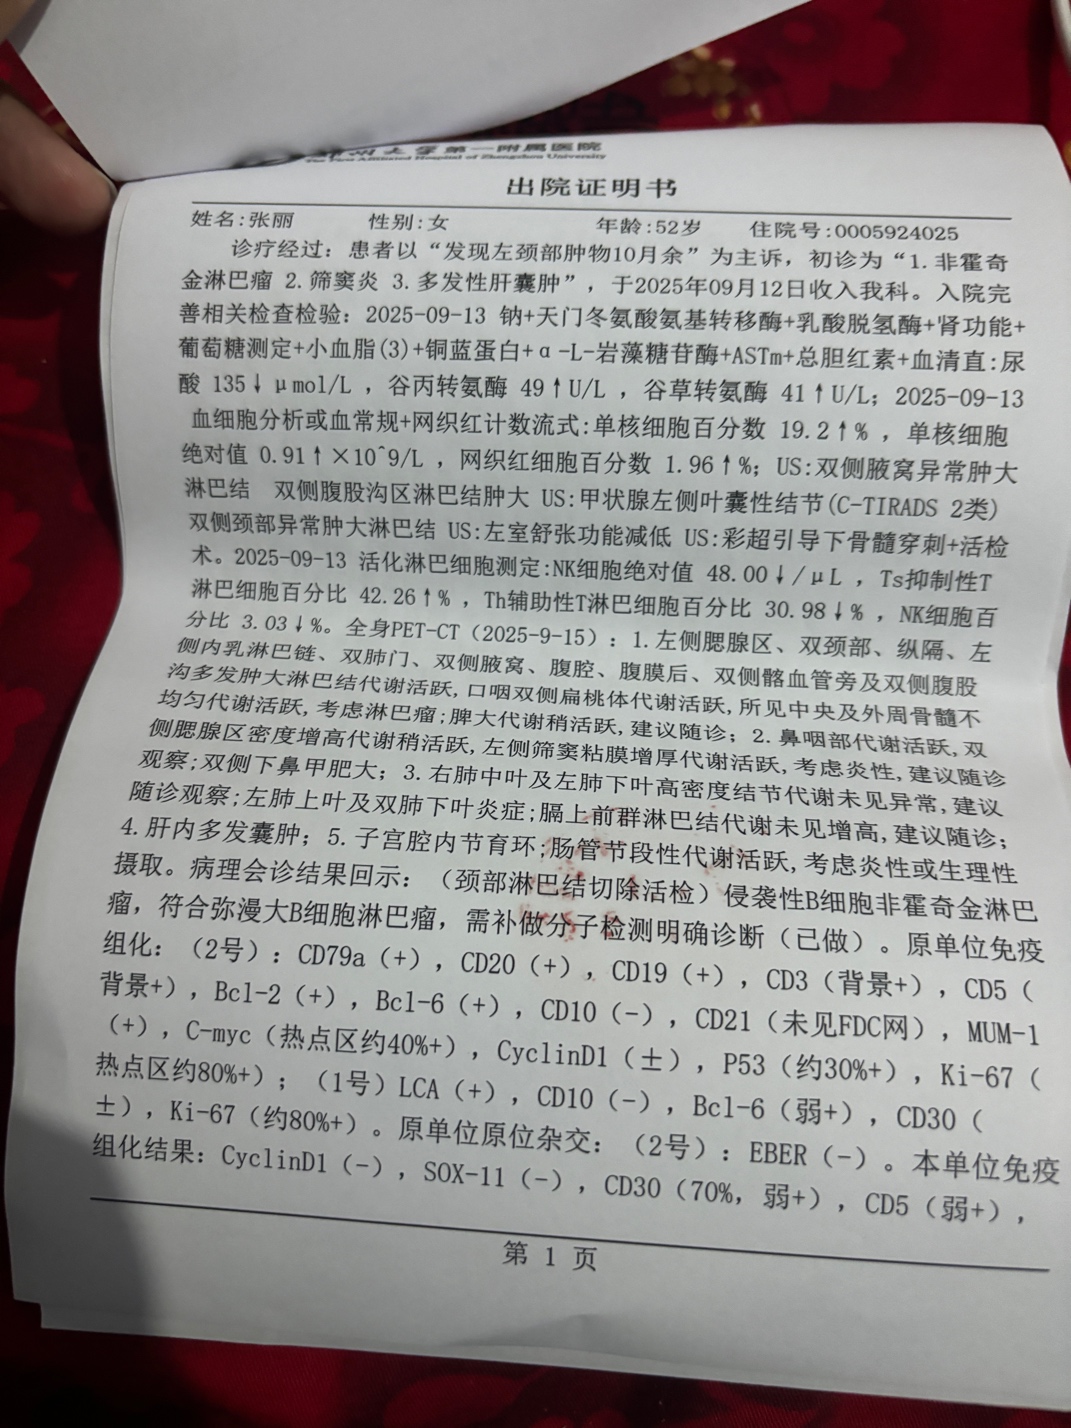 郑州大学第一附属医院
The First Affiliated Hospital of Zhengzhou University
出院证明书
姓名:张丽 性别:女 年龄:52岁 住院号:0005924025
诊疗经过: 患者以“发现左颈部肿物10月余”为主诉, 初诊为“1.非霍奇
金淋巴瘤 2.筛窦炎 3.多发性肝囊肿”, 于2025年09月12日收入我科。入院完
善相关检查检验: 2025-09-13 钠+天门冬氨酸氨基转移酶+乳酸脱氢酶+肾功能+
葡萄糖测定+小血脂(3)+铜蓝蛋白+α-L-岩藻糖苷酶+ASTm+总胆红素+血清直:尿
酸 135↓μmol/L , 谷丙转氨酶 49↑U/L , 谷草转氨酶 41↑U/L; 2025-09-13
血细胞分析或血常规+网织红计数流式:单核细胞百分数 19.2↑% , 单核细胞
绝对值 0.91↑×10^9/L , 网织红细胞百分数 1.96↑%; US:双侧腋窝异常肿大
淋巴结 双侧腹股沟区淋巴结肿大 US:甲状腺左侧叶囊性结节(C-TIRADS 2类)
双侧颈部异常肿大淋巴结 US:左室舒张功能减低 US:彩超引导下骨髓穿刺+活检
术。2025-09-13 活化淋巴细胞测定:NK细胞绝对值 48.00↓/μL , Ts抑制性T
淋巴细胞百分比 42.26↑% , Th辅助性T淋巴细胞百分比 30.98↓% , NK细胞百
分比 3.03↓%。全身PET-CT（2025-9-15）: 1.左侧腮腺区、双颈部、纵隔、左
侧内乳淋巴链、双肺门、双侧腋窝、腹腔、腹膜后、双侧髂血管旁及双侧腹股
沟多发肿大淋巴结代谢活跃,口咽双侧扁桃体代谢活跃,所见中央及外周骨髓不
均匀代谢活跃,考虑淋巴瘤;脾大代谢稍活跃,建议随诊; 2.鼻咽部代谢活跃,双
侧腮腺区密度增高代谢稍活跃,左侧筛窦粘膜增厚代谢活跃,考虑炎性,建议随诊
观察;双侧下鼻甲肥大; 3.右肺中叶及左肺下叶高密度结节代谢未见异常,建议
随诊观察;左肺上叶及双肺下叶炎症;膈上前群淋巴结代谢未见增高,建议随诊;
4.肝内多发囊肿; 5.子宫腔内节育环;肠管节段性代谢活跃,考虑炎性或生理性
摄取。病理会诊结果回示: （颈部淋巴结切除活检）侵袭性B细胞非霍奇金淋巴
瘤, 符合弥漫大B细胞淋巴瘤, 需补做分子检测明确诊断（已做）。原单位免疫
组化: （2号）: CD79a（+）, CD20（+）, CD19（+）, CD3（背景+）, CD5（
背景+）, Bcl-2（+）, Bcl-6（+）, CD10（-）, CD21（未见FDC网）, MUM-1
（+）, C-myc（热点区约40%+）, CyclinD1（±）, P53（约30%+）, Ki-67（
热点区约80%+）; （1号）LCA（+）, CD10（-）, Bcl-6（弱+）, CD30（
±）, Ki-67（约80%+）。原单位原位杂交: （2号）: EBER（-）。本单位免疫
组化结果: CyclinD1（-）, SOX-11（-）, CD30（70%, 弱+）, CD5（弱+）,
第 1 页